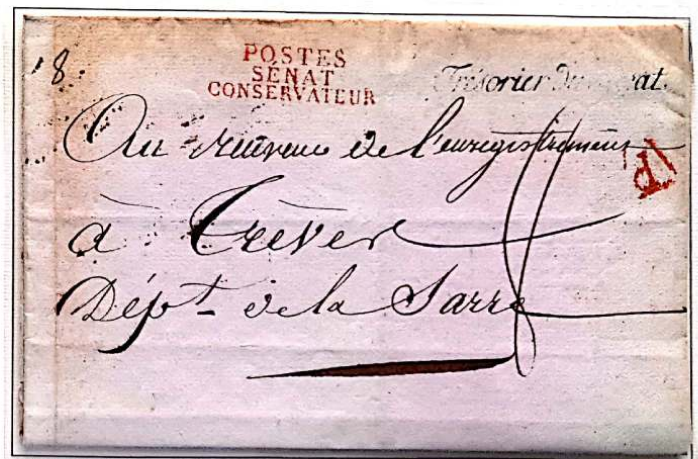 18.
POSTES
SÉNAT
CONSERVATEUR
Trésorier du Sénat.
Au receveur de l'enregistrement
P
à Trèves
Dépt de la Sarre